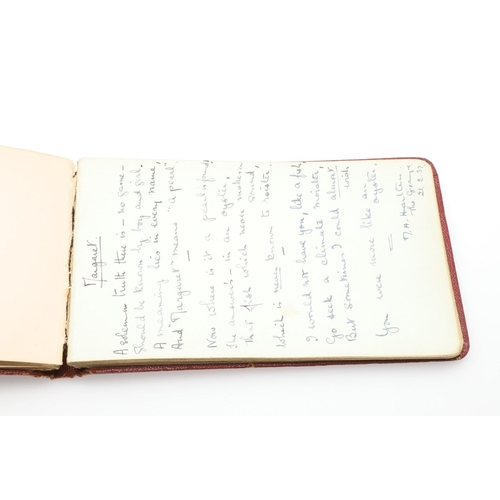 Margaret
A solemn truth there is - no game -
Should be known by boy and girl.
A meaning lies in every name,
And "Margaret" means "a pearl".
Now where is it a pearl is found?
The answer's - in an oyster,
That fish which never makes a sound,
Which is never known to roister.
I would not have you, like a fish,
Go seek a climate moister,
But sometimes I could almost wish
You were more like an oyster.
The Grange